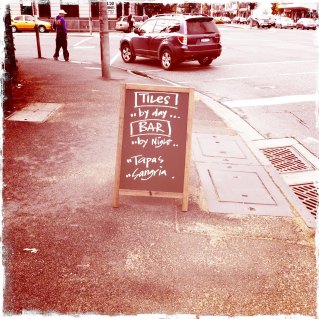 TILES!
..by day...
BAR
..by Night..
"Tapas
"Sangria.